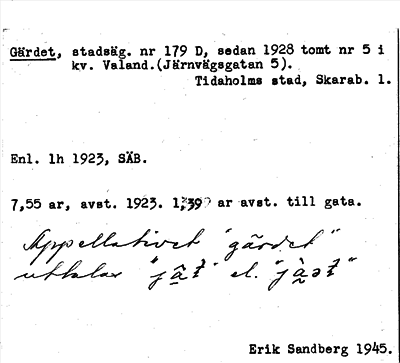 Gärdet, stadsäg. nr 179 D, sedan 1928 tomt nr 5 i
kv. Valand.(Järnvägsgatan 5).
Tidaholms stad, Skarab. l.
Enl. lh 1923, SÄB.
7,55 ar, avst. 1923. 1,39 ar avst. till gata.
Appellativet "gärdet"
uttalas "jä̂t" el. "jä̀ət"
Erik Sandberg 1945.